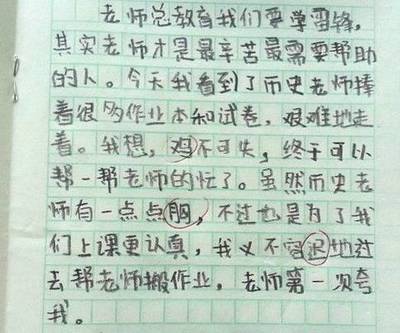 老师总教育我们要学雷锋,
其实老师才是最辛苦最需要帮助
的人。今天我看到了历史老师捧
着很多作业本和试卷,艰难地走
着。我想,鸡不可失,终于可以
帮一帮老师的忙了。虽然历史老
师有一点点胸,不过也是为了我
们上课更认真,我义不容迟地过
去帮老师搬作业,老师第一次夸
我。